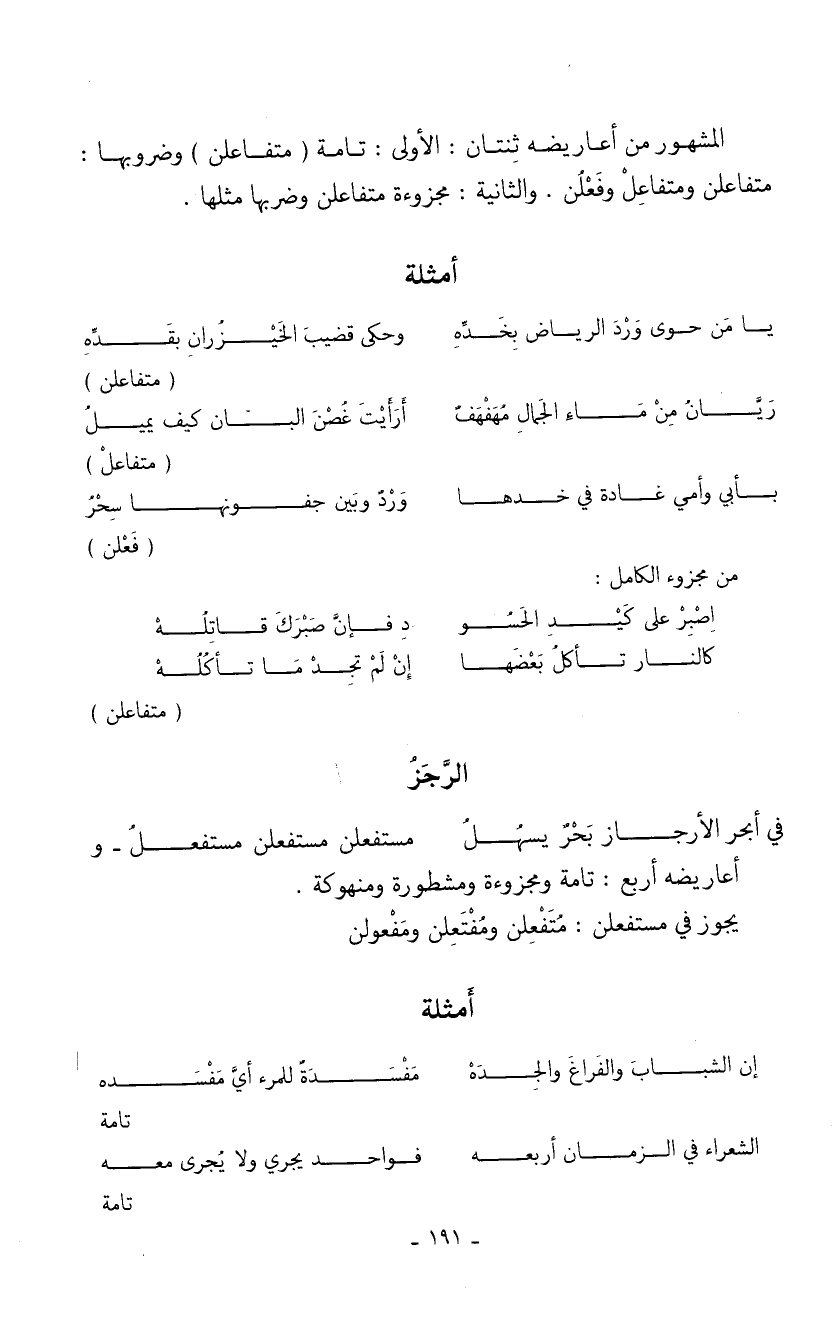 المشهور من أعاريضه ثِنتان : الأولى : تامة ( متفاعلن ) وضروبها :
متفاعلن ومتفاعلْ وفَعْلُن . والثانية : مجزوءة متفاعلن وضربها مثلها .
أمثلة
يا مَن حوى وَرْدَ الرياض بِخَدِّهِ وحكى قضيبَ الخَيْزُرانِ بقَدِّهِ
( متفاعلن )
رَيَّانُ مِنْ مَاءِ الجَمالِ مُهَفْهَفٌ أَرَأَيْتَ غُصْنَ البانِ كيف يميلُ
( متفاعلْ )
بأبي وأمي غادة في خدها وَرْدٌ وبَين جفونها سِحْرُ
( فَعْلن )
من مجزوء الكامل :
اِصْبِرْ على كَيْدِ الحَسُو دِ فإنَّ صَبْرَكَ قاتِلُهْ
كالنار تأكلُ بَعْضَها إنْ لَمْ تجِدْ مَا تأكُلُهْ
( متفاعلن )
الرَّجَزُ
في أبحر الأرجاز بَحْرٌ يسهُلُ مستفعلن مستفعلن مستفعلُ ـ و
أعاريضه أربع : تامة ومجزوءة ومشطورة ومنهوكة .
يجوز في مستفعلن : مُتَفْعِلن ومُفْتَعِلن ومَفْعولن
أَمثلة
إن الشبابَ والفَراغَ والجِدَهْ مَفْسَدَةٌ للمرء أيَّ مَفْسَده
تامة
الشعراء في الزمان أربعه فواحد يجري ولا يُجرى معه
تامة
ـ ١٩١ ـ